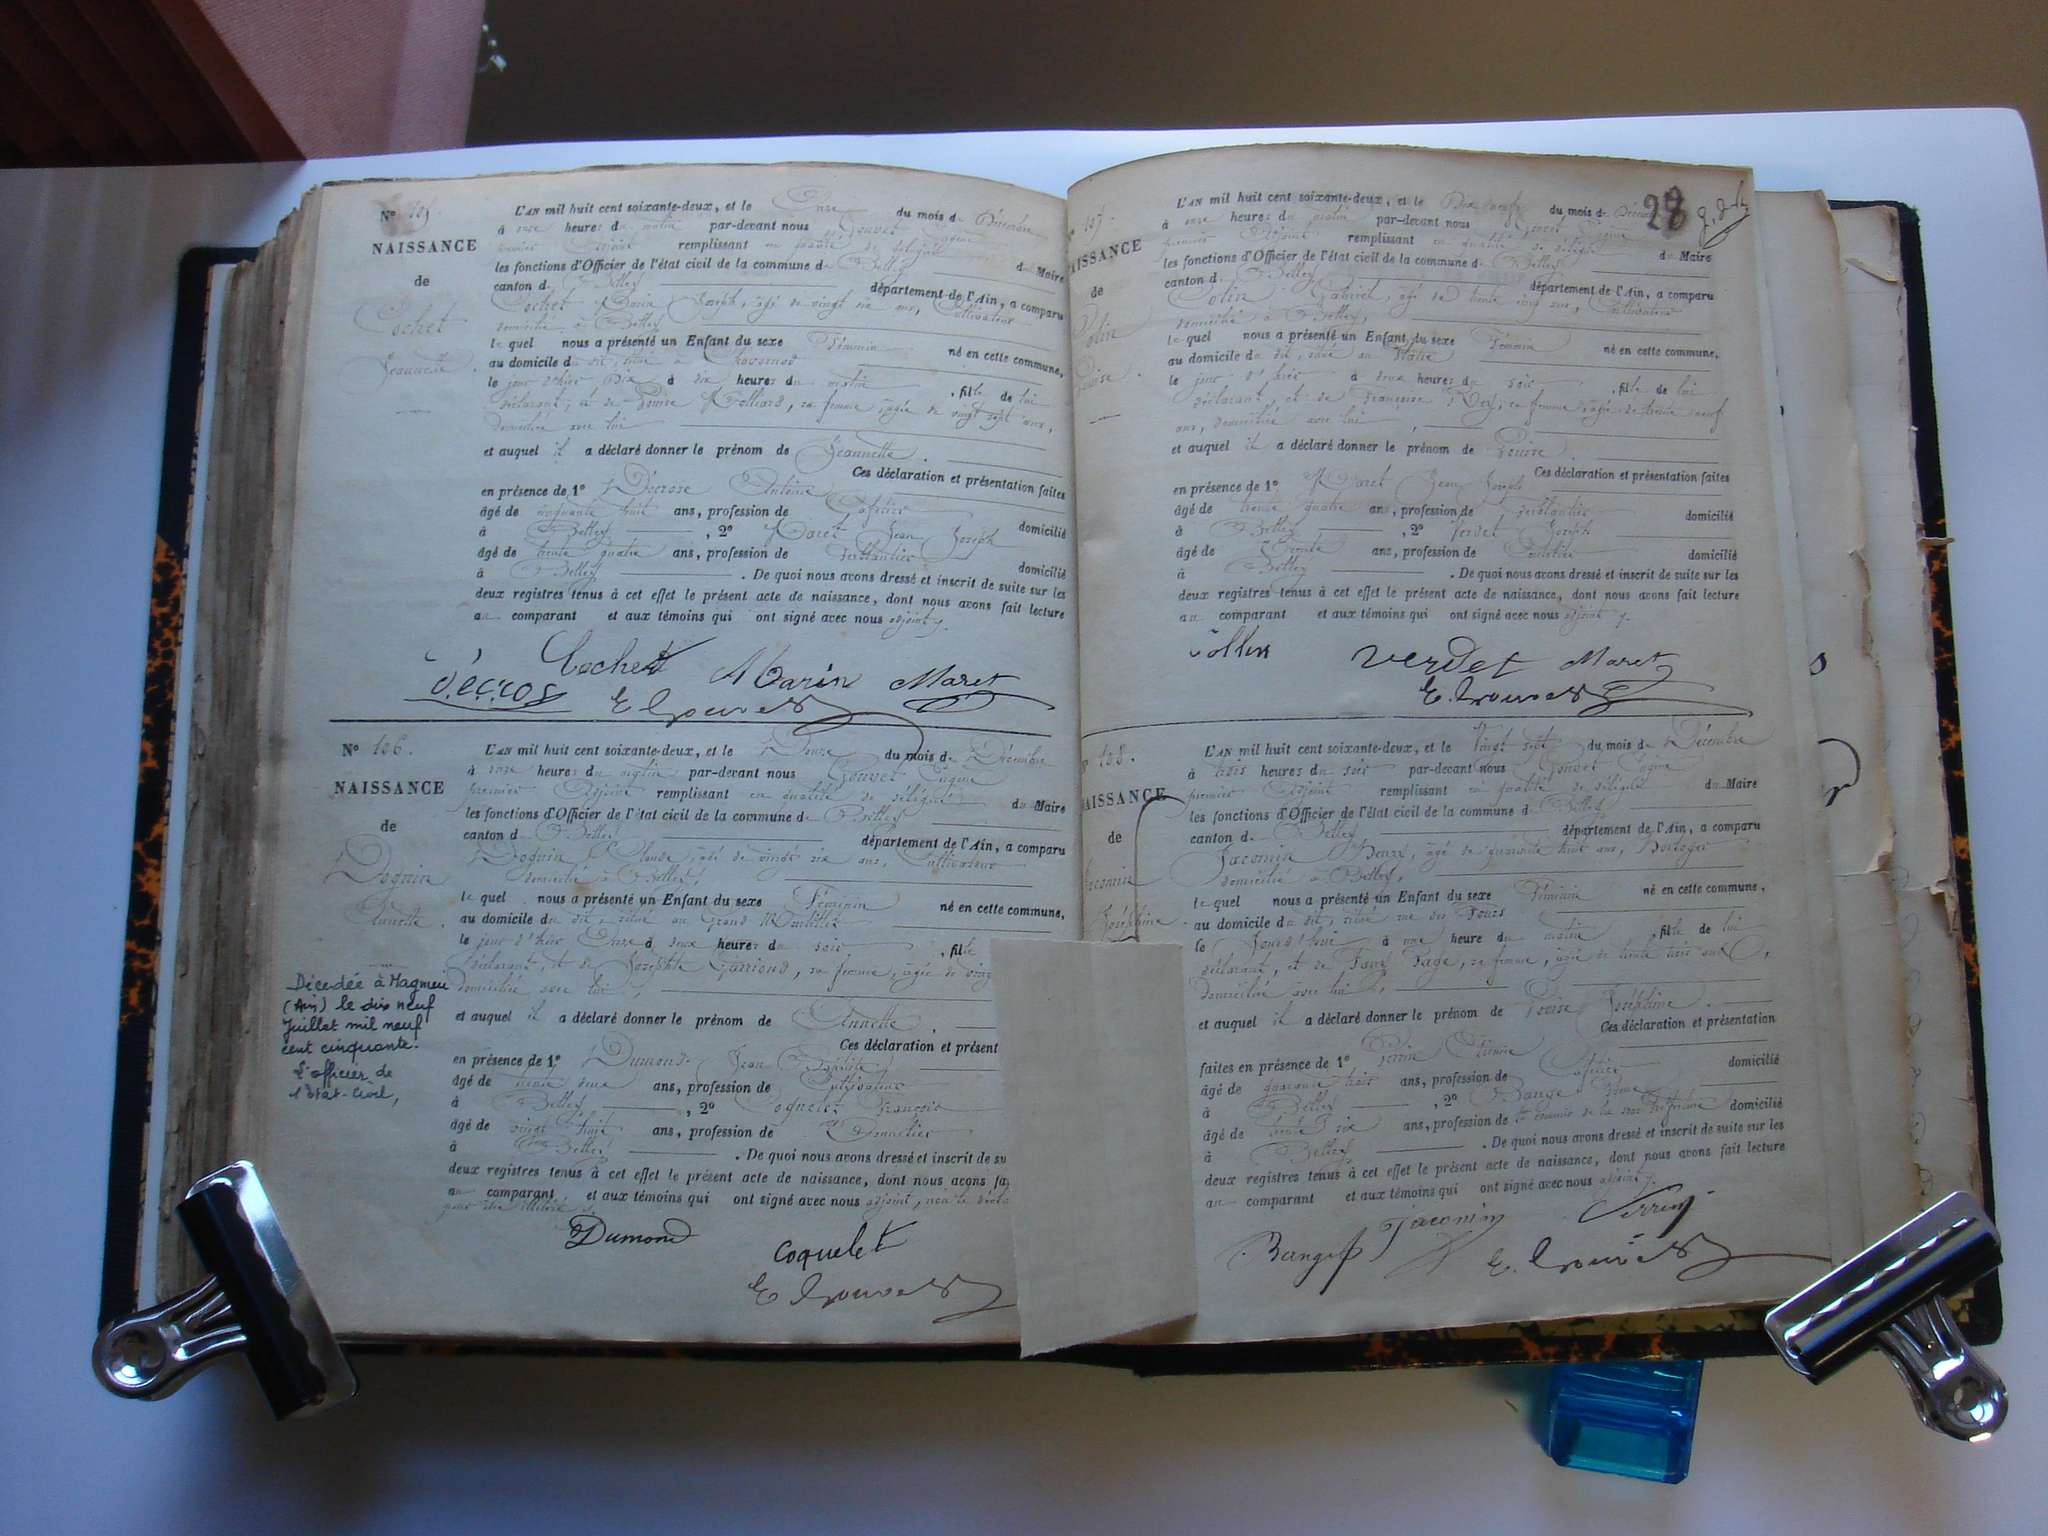 N° 105.
NAISSANCE
de
Cochet
Jeannette.
L'AN mil huit cent soixante-deux, et le Onze du mois de Décembre
à onze heures du matin par-devant nous Gouvet Eugène
premier Adjoint remplissant en qualité de délégué du Maire
les fonctions d'Officier de l'état civil de la commune de Belley
canton de Belley département de l'Ain, a comparu
Cochet Marin Joseph, âgé de vingt six ans, Cultivateur
domicilié à Belley
le quel nous a présenté un Enfant du sexe Féminin né en cette commune,
au domicile du dit, situé à
le jour d'hier Dix à dix heures du matin , fille de lui
déclarant, et de Louise , sa femme, âgée de vingt sept ans,
domiciliée avec lui
et auquel il a déclaré donner le prénom de Jeannette.
Ces déclaration et présentation faites
en présence de 1° Décrose Antoine
âgé de cinquante huit ans, profession de Cafetier domicilié
à Belley , 2° Maret Jean Joseph
âgé de trente quatre ans, profession de ferblantier domicilié
à Belley . De quoi nous avons dressé et inscrit de suite sur les
deux registres tenus à cet effet le présent acte de naissance, dont nous avons fait lecture
au comparant et aux témoins qui ont signé avec nous adjoint.
Cochet Marin Maret
Décros E Gouvet
N° 106.
NAISSANCE
de
Dognin
Annette.
Décédée à Magnieu
(Ain) le dix neuf
Juillet mil neuf
cent cinquante.
L'officier de
l'Etat-Civil,
L'AN mil huit cent soixante-deux, et le Douze du mois de Décembre
à onze heures du matin par-devant nous Gouvet Eugène
premier Adjoint remplissant en qualité de délégué du Maire
les fonctions d'Officier de l'état civil de la commune de Belley
canton de Belley département de l'Ain, a comparu
Dognin Claude, âgé de vingt six ans, Cultivateur
domicilié à Belley,
le quel nous a présenté un Enfant du sexe Féminin né en cette commune,
au domicile du dit, situé au Grand
le jour d'hier Onze à deux heures du soir , fille
déclarant, et de Josephte , sa femme, âgée de vingt
domiciliée avec lui,
et auquel il a déclaré donner le prénom de Annette.
Ces déclaration et présent
en présence de 1° Dumond Jean Baptiste
âgé de ans, profession de Cultivateur
à Belley , 2° Coquelet François
âgé de vingt huit ans, profession de Bonnetier
à Belley . De quoi nous avons dressé et inscrit de su
deux registres tenus à cet effet le présent acte de naissance, dont nous avons fa
au comparant et aux témoins qui ont signé avec nous adjoint, non le décla
pour être illétéré.
Dumond
Coquelet
E Gouvet
28
107.
AISSANCE
de
Colin
Louise.
L'AN mil huit cent soixante-deux, et le Dix neuf du mois de Décembre
à onze heures du matin par-devant nous Gouvet Eugène
premier Adjoint remplissant en qualité de délégué du Maire
les fonctions d'Officier de l'état civil de la commune de Belley
canton de Belley département de l'Ain, a comparu
Colin Gabriel, âgé de trente cinq ans, Cultivateur
domicilié à Belley,
le quel nous a présenté un Enfant du sexe Féminin né en cette commune,
au domicile du dit, situé au
le jour d'hier à deux heures du soir , fille de lui
déclarant, et de Françoise Rey, sa femme, âgée de trente neuf
ans, domiciliée avec lui,
et auquel il a déclaré donner le prénom de Louise.
Ces déclaration et présentation faites
en présence de 1° Maret Jean Joseph
âgé de trente quatre ans, profession de ferblantier domicilié
à Belley , 2° Verdet Joseph
âgé de Trente ans, profession de domicilié
à Belley . De quoi nous avons dressé et inscrit de suite sur les
deux registres tenus à cet effet le présent acte de naissance, dont nous avons fait lecture
au comparant et aux témoins qui ont signé avec nous adjoint.
Verdet Maret
E. Gouvet
108.
AISSANCE
de
Jacomin
Joséphine
L'AN mil huit cent soixante-deux, et le Vingt sept du mois de Décembre
à trois heures du soir par-devant nous Gouvet Eugène
premier Adjoint remplissant en qualité de délégué du Maire
les fonctions d'Officier de l'état civil de la commune de Belley
canton de Belley département de l'Ain, a comparu
Jacomin Henri, âgé de quarante huit ans, Horloger
domicilié à Belley,
le quel nous a présenté un Enfant du sexe Féminin né en cette commune,
au domicile du dit, situé rue des Fours
le Jourd'hui à une heure du matin , fille de lui
déclarant, et de Page, sa femme, âgée de trente trois ans,
domiciliée avec lui,
et auquel il a déclaré donner le prénom de Louise Joséphine.
Ces déclaration et présentation
faites en présence de 1° Perrin Etienne
âgé de quarante trois ans, profession de Cafetier domicilié
à Belley , 2° Bange
âgé de trente six ans, profession de domicilié
à Belley . De quoi nous avons dressé et inscrit de suite sur les
deux registres tenus à cet effet le présent acte de naissance, dont nous avons fait lecture
au comparant et aux témoins qui ont signé avec nous adjoint.
Bange Jacomin Perrin
E. Gouvet